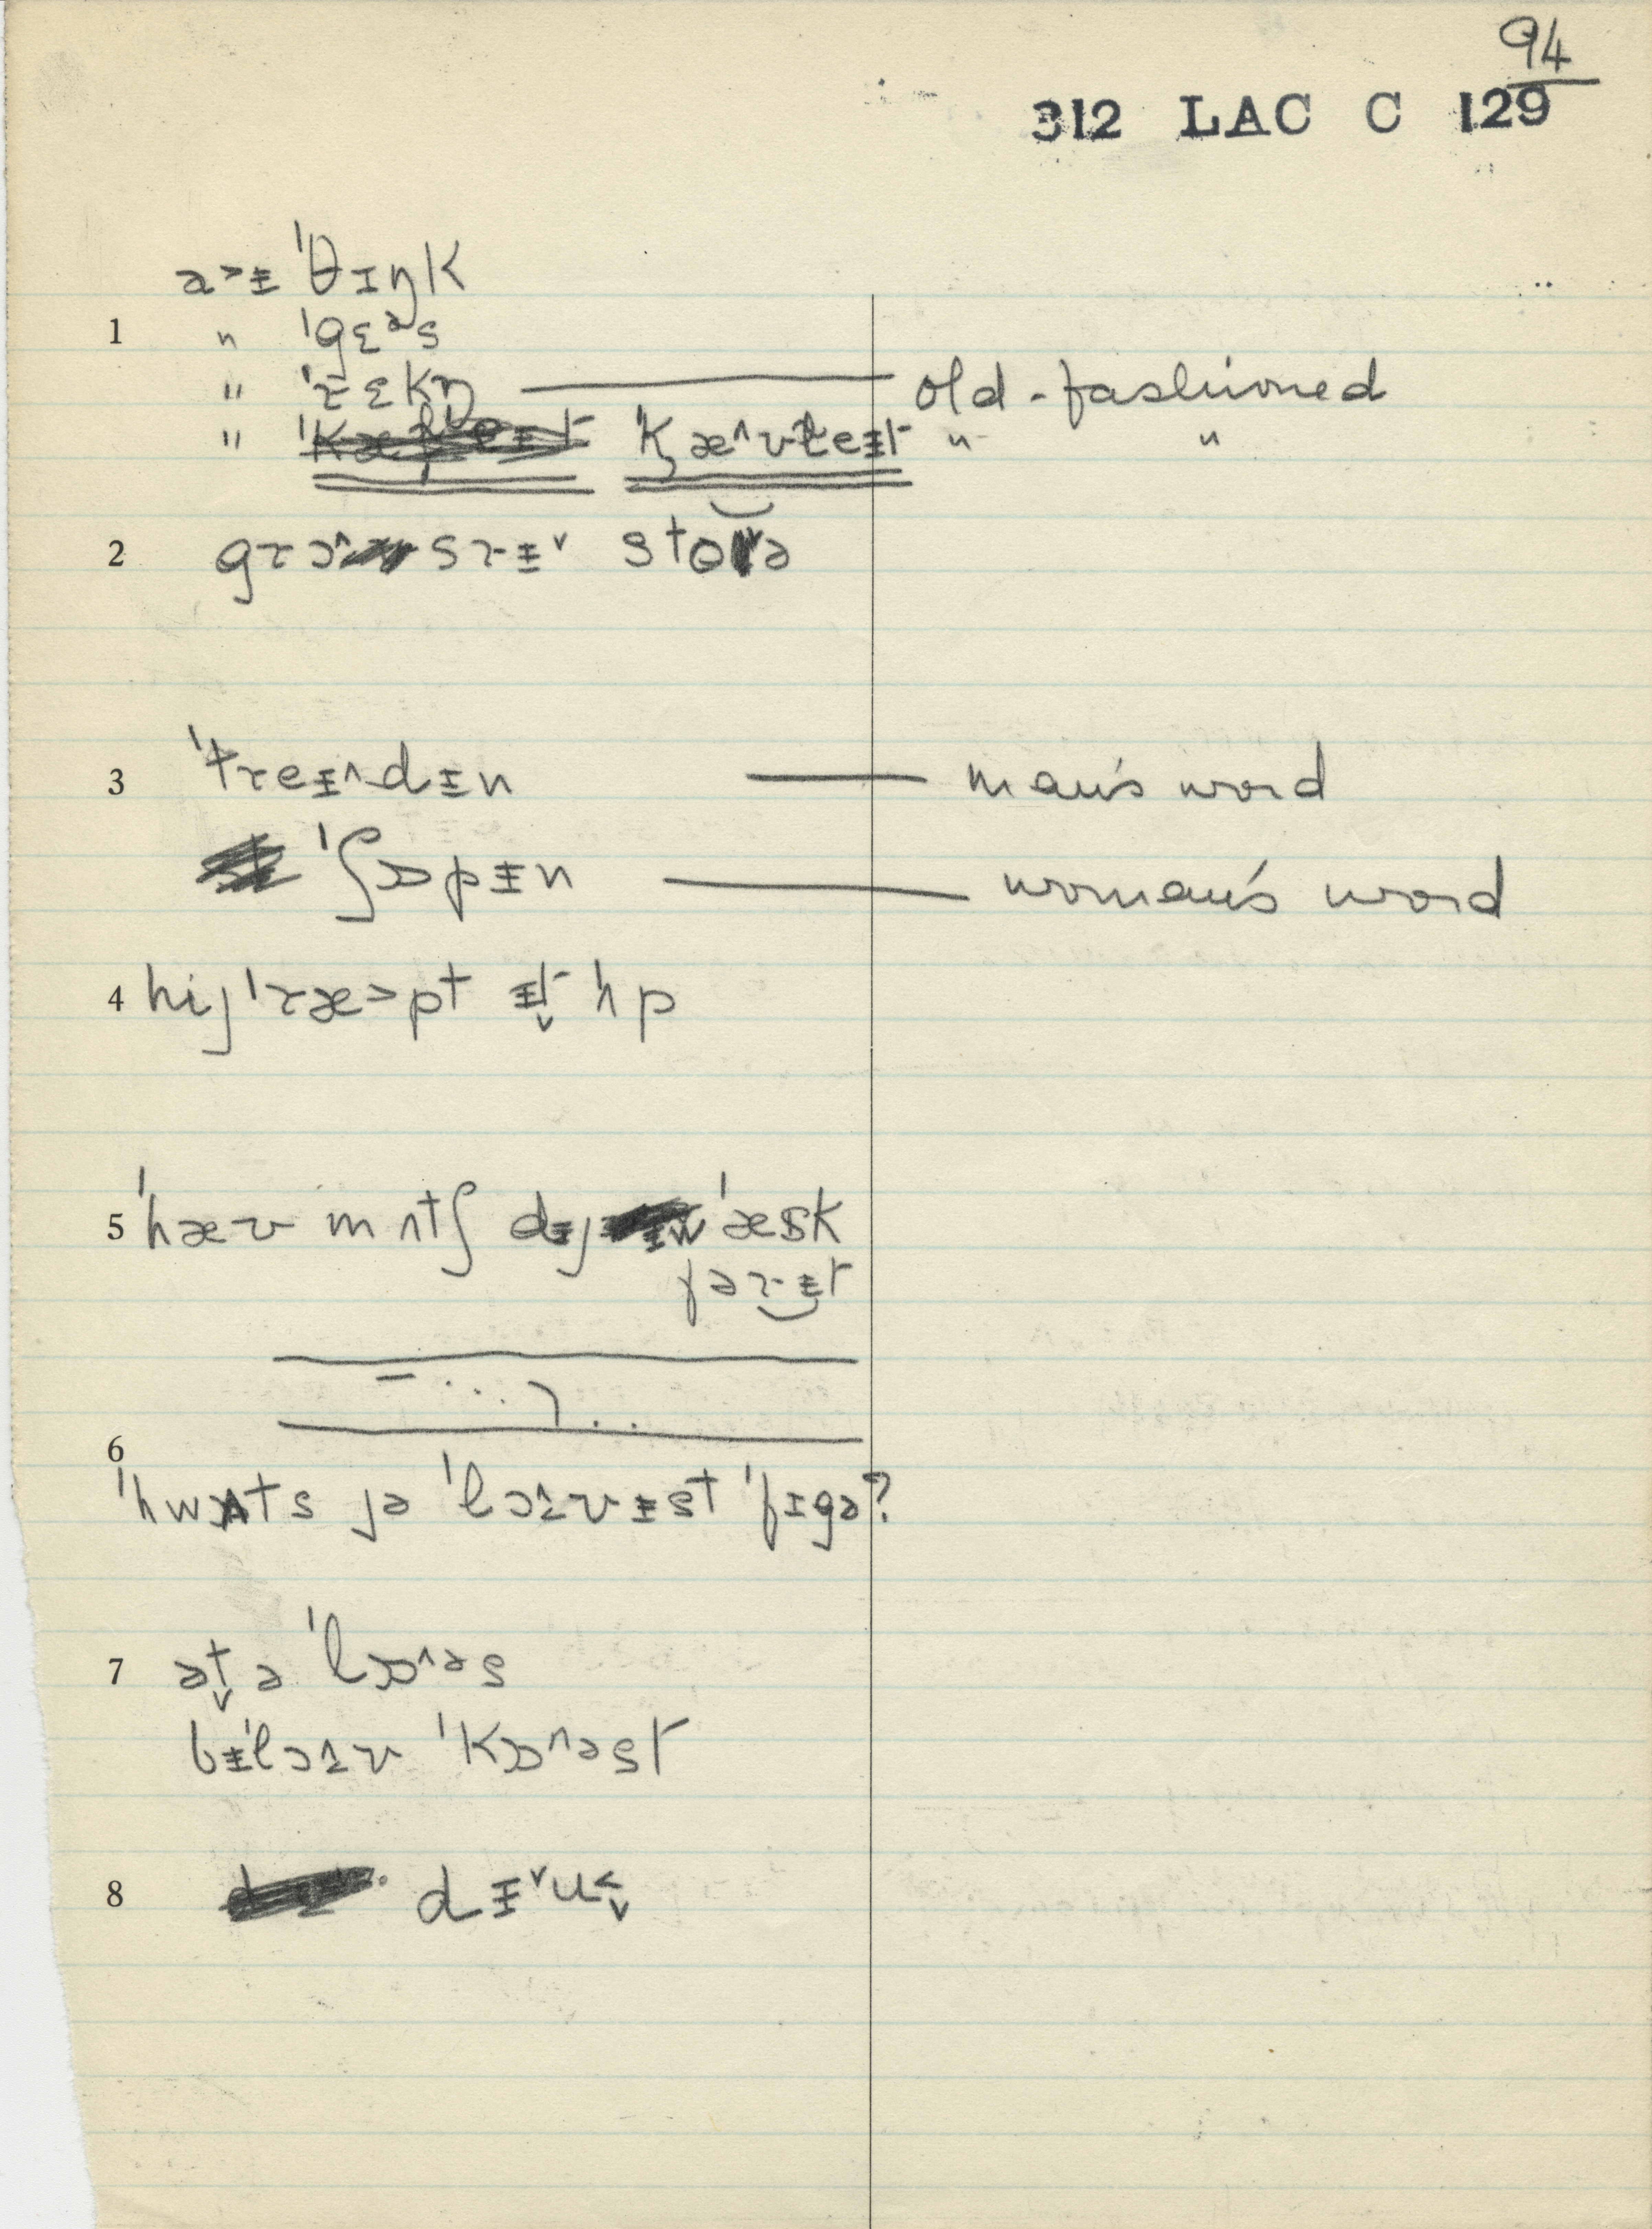 94
312 LAC C 129
a˃ᵻ ˈθɪŋk
1 " ˈgɛᵊs
" ˈrɛkn̩ — old-fashioned
" ˈkæ˄vɫeᵻt " "
2 grɔ˄srᵻ˅ stoə
3 ˈtreᵻ˄dᵻn — man's word
ˈʃɒpᵻn — woman's word
4 hij ˈræ˃pt ᵻt̬ ˈʌp
5 ˈhæv mʌtʃ dᵻj ˈæsk
fər ᵻt
6
ˈhwʌts jə ˈlɔ˄ᵻvᵻst ˈfɪgə?
7 ət̬ ə ˈlɒ˄əs
bᵻˈlɔ˄ᵻv ˈkɒ˄əst
8 dᵻ˅u˂̬